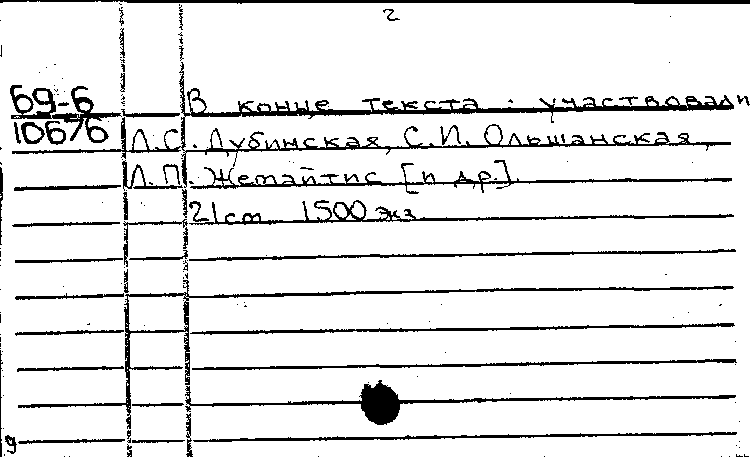 2
69-6 В конце текста: участвовали
10676 Л.С. Дубинская, С.И. Ольшанская,
Л.П. Жемайтис [и др.]
21 cm 1500 экз
g